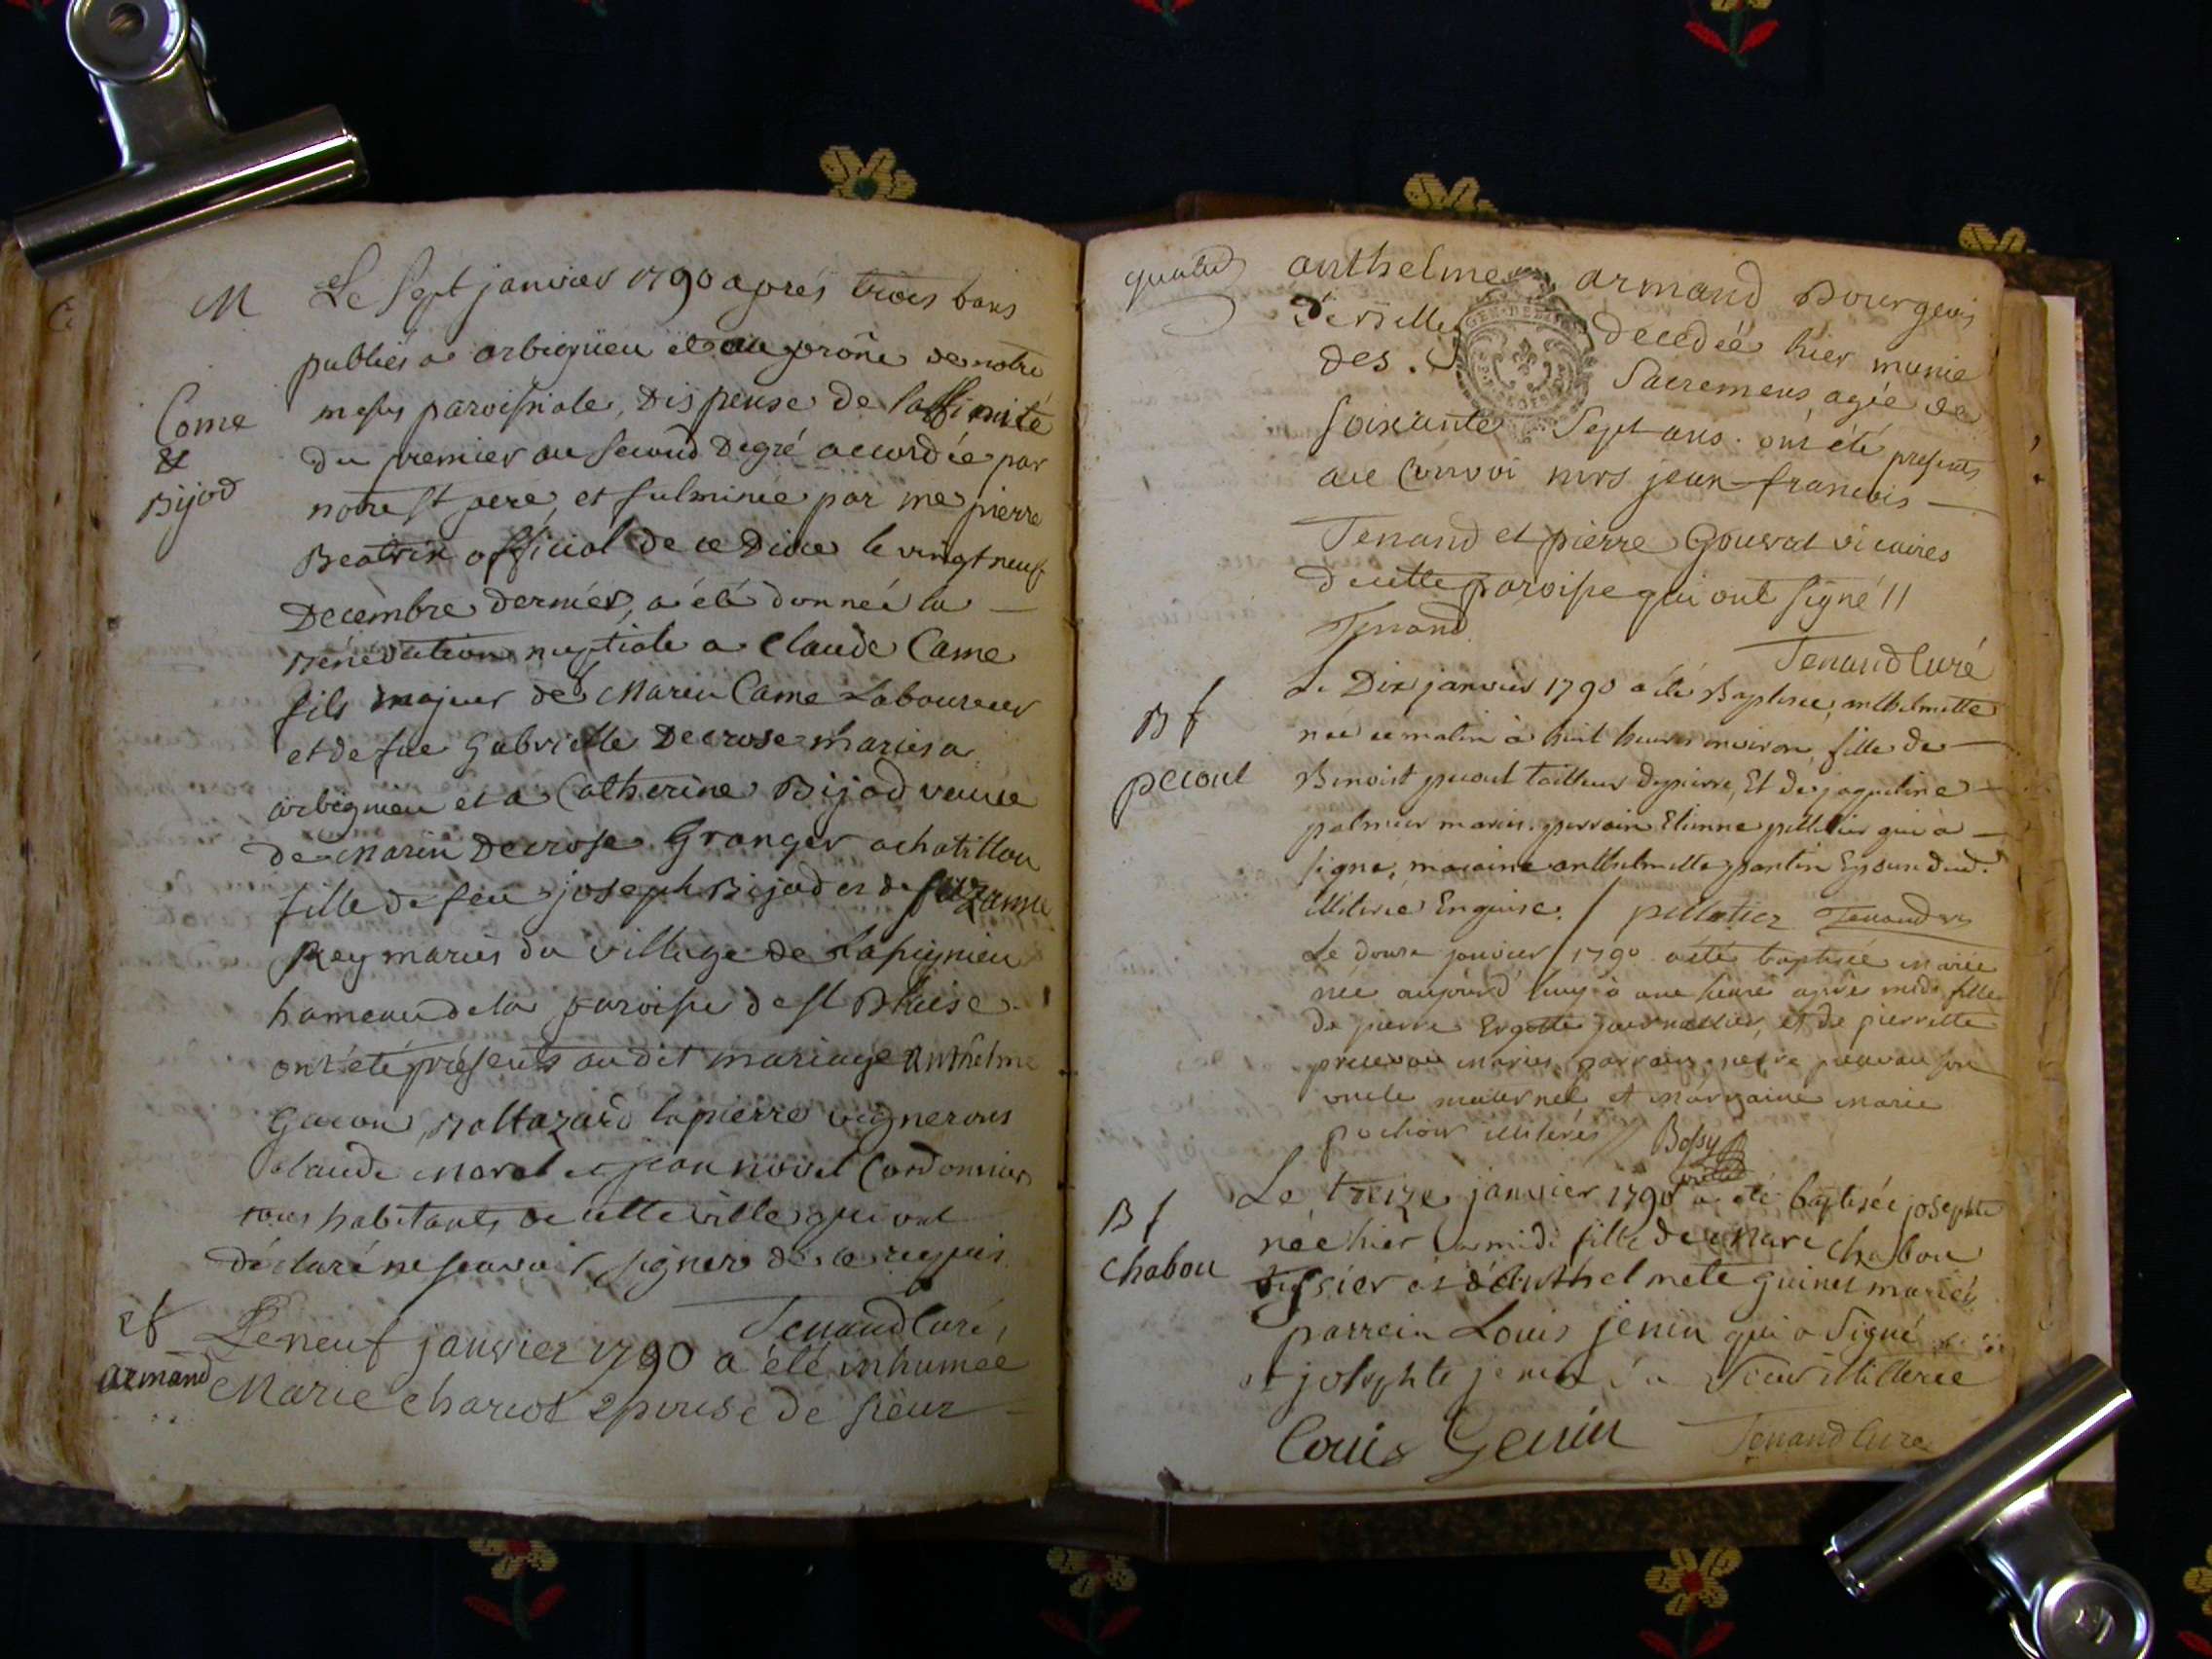 M
Le Sept janvier 1790 après trois bans
publiés a arbignieu et au prône de notre
messe paroissiale, Dispense de laffinité
Come
&
Bijod
du premier au second Degré accordée par
notre st pere, et fulminée par me pierre
Beatrix official de ce Dioce le vingt neuf
Decembre dernier, a été donnée la
Bénédiction nuptiale a Claude Came
fils majeur de Marin Came Laboureur
et de fue Gabrielle Decrose mariés a
arbignieu et a Catherine Bijod veuve
de Marin Decrose Granger a chatillon
fille de feu joseph Bijod et de suzanne
Rey mariés du village de
hameau de la paroisse de st Blaise
ont été présents audit mariage Anthelme
Gacon, Baltazard lapierre vignerons
claude Morel et jean Cordonnier
tous habitants de cette ville qui ont
déclaré ne scavoir signer de ce requis
Tenand Curé
Armand
Le neuf janvier 1790 a été inhumée
Marie chariot epouse de sieur
anthelme armand Bourgeois
decedée hier munie
des Sacremens, agée de
soixante Sept ans. ont été presents
au Convoi mrs jean francois
Tenand et pierre Gouvat vicaires
de cette paroisse qui ont signé //
Tenand
Tenand Curé
B f
pecout
Le Dix janvier 1790 a été Baptisée, anthelmette
née ce matin à huit heures environ, fille de
Benoist pecout tailleur de pierre, Et de jaqueline
palmier mariés. parrain Etienne pelletier qui a
signé, maraine anthelmette pantin Epouse dud.
illiterée Enquise. / pelletier Tenand
Le douze janvier 1790 a été baptisée marie
née aujourd'huy à une heure après midi fille
de pierre journallier, et de pierrette
mariés parrain pierre son
oncle maternel et marraine marie
pochon illiterés / Bossy
B f
Chabou
Le treize janvier 1790 a été baptisée josephte
née hier a midi fille de Marc Chabou
tissier et d'Anthelmete guinet mariés
parrein Louis jenin qui a Signé
et josephte jenin sa Sœur illiterée
Louis Genin
Tenand Curé